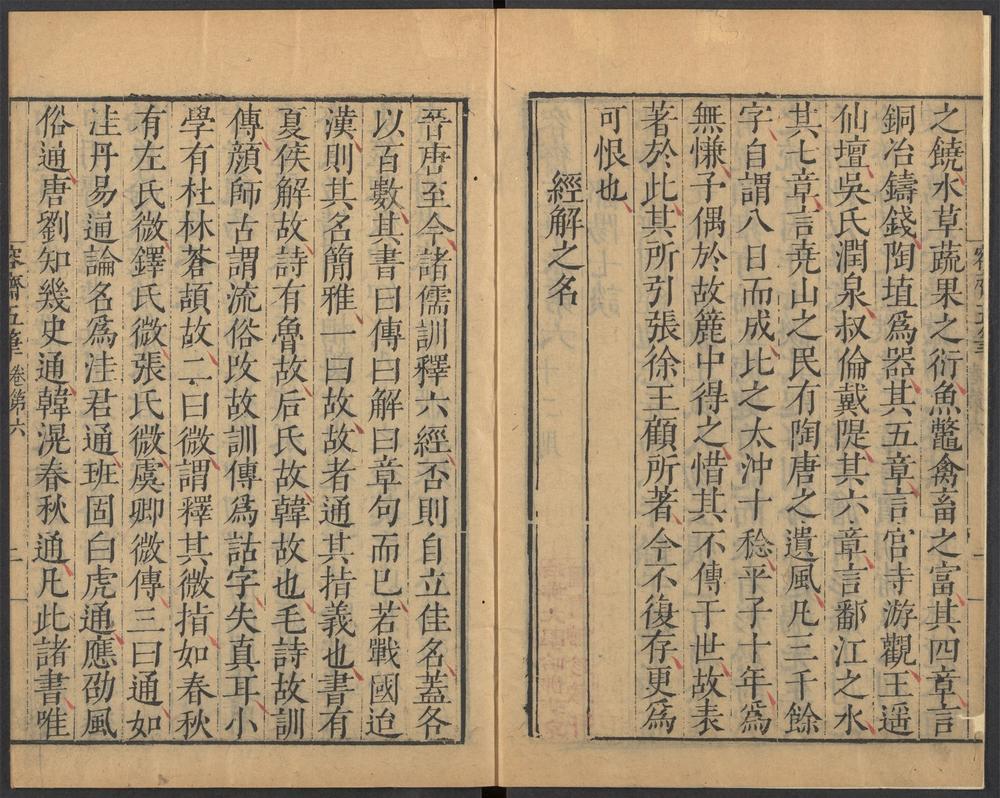 之饒水草蔬果之衍魚鼈禽畜之富其四章言
銅冶鑄錢陶埴爲器其五章言宮寺游觀王遥
仙壇吳氏潤泉叔倫戴隄其六章言鄱江之水
其七章言尭山之民有陶唐之遺風凡三千餘
字自謂八日而成比之太沖十稔平子十年爲
無慊予偶於故簏中得之惜其不傳于世故表
著於此其所引張徐王顧所著今不復存更爲
可恨也
經解之名
晉唐至今諸儒訓釋六經否則自立佳名蓋各
以百數其書曰傳曰解曰章句而已若戰國迨
漢則其名簡雅一曰故故者通其指義也書有
夏侯解故詩有魯故后氏故韓故也毛詩故訓
傳顔師古謂流俗改故訓傳爲詁字失真耳小
學有杜林蒼頡故二曰微謂釋其微指如春秋
有左氏微鐸氏微張氏微虞卿微傳三曰通如
洼丹易通論名爲洼君通班固白虎通應劭風
俗通唐劉知幾史通韓滉春秋通凡此諸書唯
容齋五筆 卷第六
二